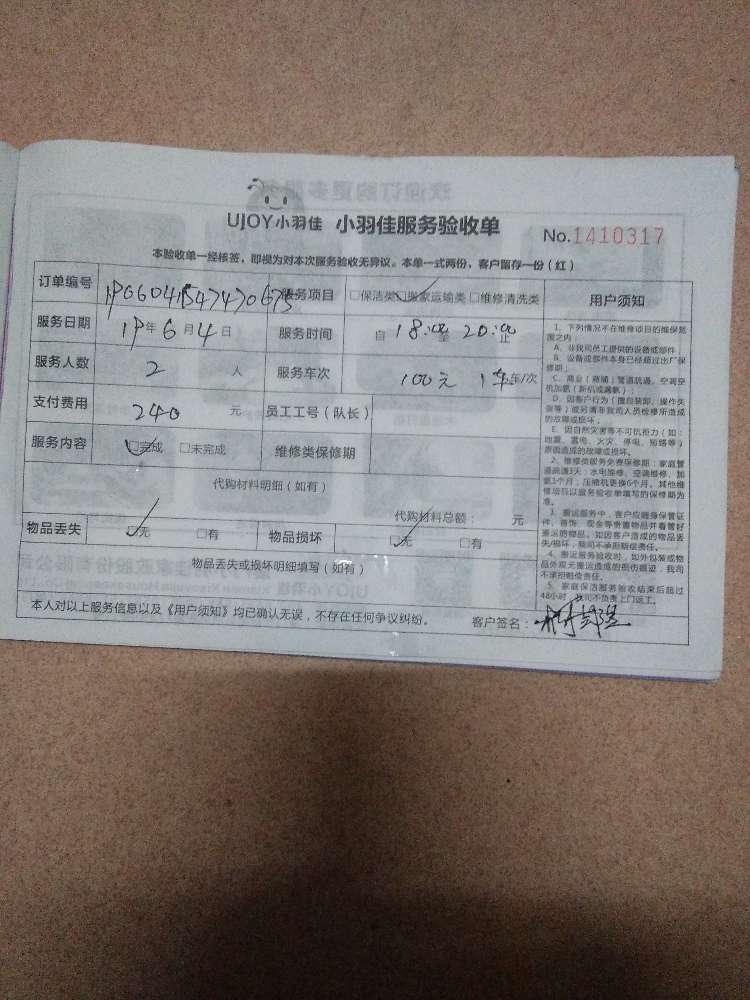 UJOY小羽佳 小羽佳服务验收单
No.1410317
本验收单一经核签，即视为对本次服务验收无异议。本单一式两份，客户留存一份（红）
订单编号 服务项目 □保洁类 □搬家运输类 □维修清洗类
服务日期 19年6月4日 服务时间 自18:00至20:00止
服务人数 2人 服务车次 100元 1车车/次
支付费用 240元 员工工号（队长）
服务内容 □完成 □未完成 维修类保修期
代购材料明细（如有）
代购材料总额： 元
物品丢失 □无 □有 物品损坏 □无 □有
物品丢失或损坏明细填写（如有）
本人对以上服务信息以及《用户须知》均已确认无误，不存在任何争议纠纷。 客户签名：
用户须知
1、下列情况不在维修项目的维保范
围之内
A、非我司员工提供的设备或部件
B、设备或部件本身已经超过出厂保
修期
C、商业（商铺）管道疏通，空调空
机加氨（新机或漏氨）
D、因客户行为（擅自装卸、操作失
误等）或另请非我司人员检修所造成
的故障或损坏
E、因自然灾害等不可抗拒力（如：
地震、雷电、火灾、停电、短路等）
原因造成的故障或损坏。
2、维修类服务免费保修期：家庭管
道疏通3天；水电维修、空调维修、加
氨1个月；压缩机更换6个月。其他维
修项目以服务验收单填写的保修期为
准。
3、搬运服务中，客户应随身保管证
件、首饰、现金等贵重物品并看管好
搬运的物品，如因客户造成的物品丢
失/损坏，我司不承担赔偿责任。
4、搬运服务验收时，如外包装或物
品外观无搬运造成的刮伤痕迹，我司
不承担赔偿责任。
5、家庭保洁服务验收结束后超过
48小时，我司不负责上门返工。